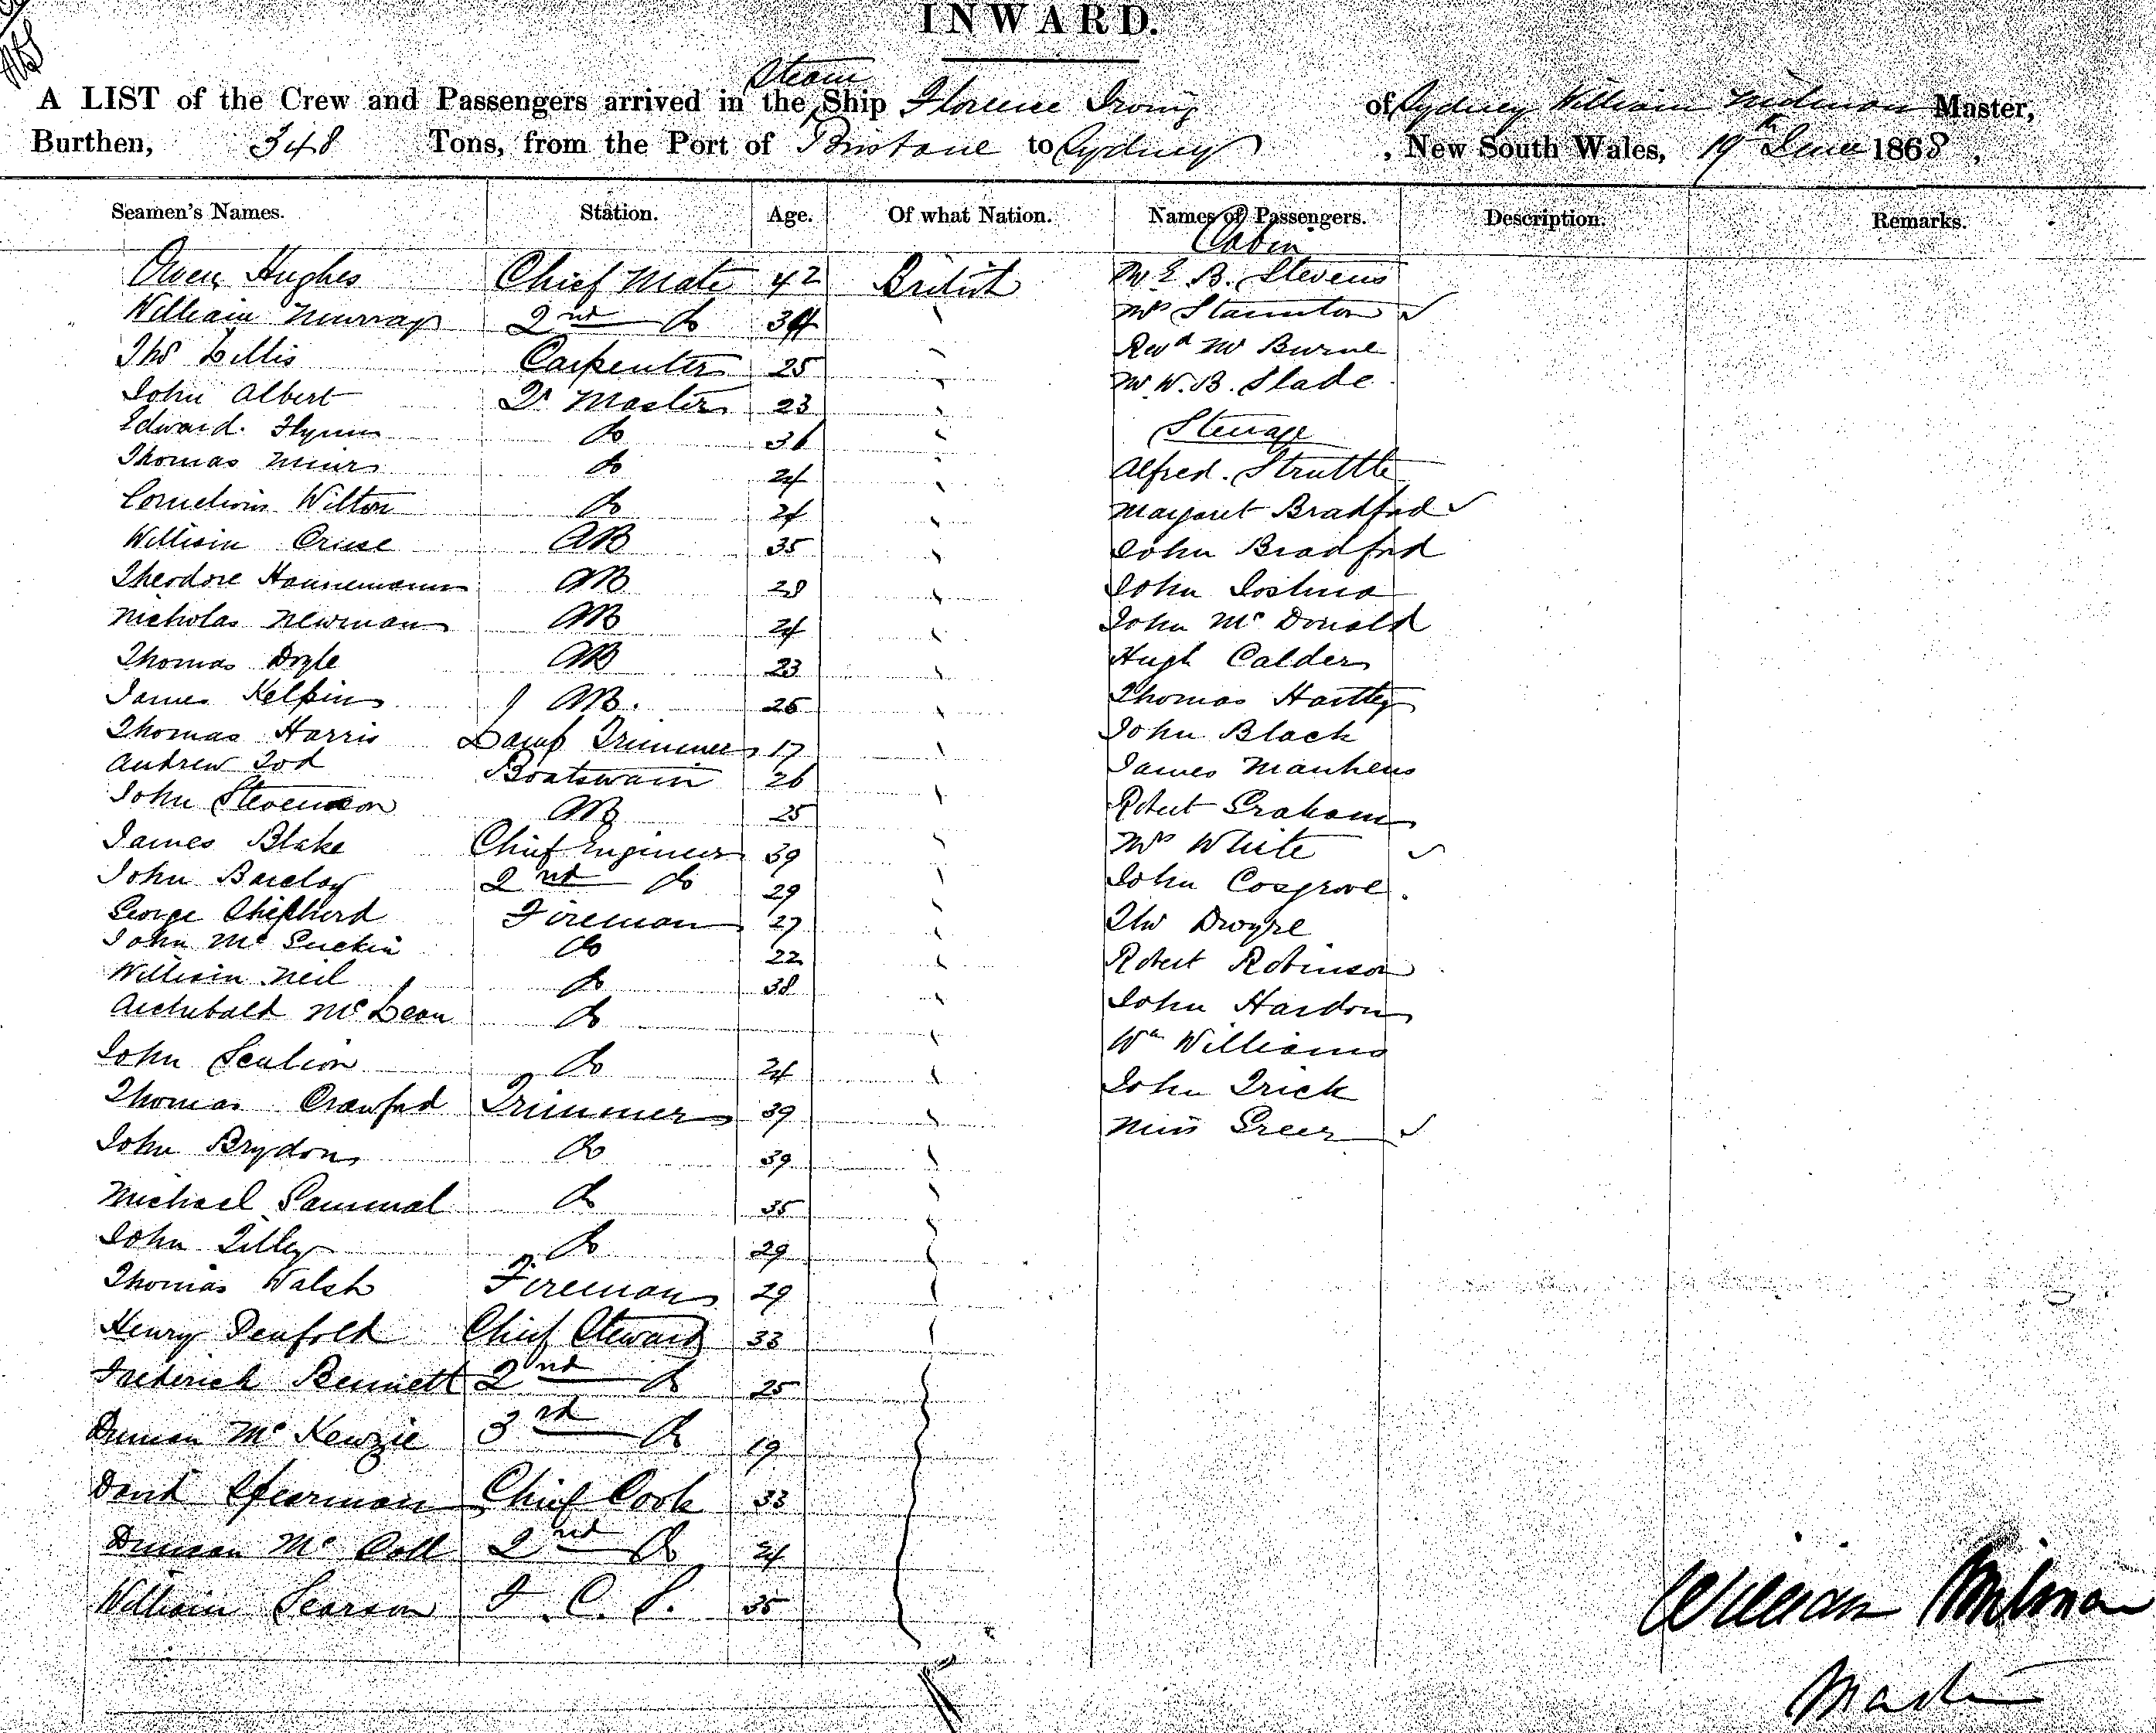 INWARD.
A LIST of the Crew and Passengers arrived in the Steam Ship Florence Irving of Sydney William Master,
Burthen, 348 Tons, from the Port of Brisbane to Sydney, New South Wales, 19th 1868,
Seamen's Names. Station. Age. Of what Nation. Names of Passengers. Description. Remarks.
Cabin
Owen Hughes Chief Mate 42 British Mr E. B. Stevens
William Murray 2nd Do 34 Mrs Staunton
Thos Lillis Carpenter 25 Revd Mr Burne
John Albert Qr Master 23 Mr W. B. Slade
Edward Flynn Do 36 Steerage
Thomas Muir Do 24 Alfred Struttle
Cornelius Wilton Do 24 Margaret Bradford
William Cruse AB 35 John Bradford
Theodore Hannemann AB 28 John Joshua
Nicholas Newman AB 24 John McDonald
Thomas Doyle AB 23 Hugh Calder
James Kelpin AB. 25 Thomas Hartley
Thomas Harris Lamp Trimmer 17 John Black
Andrew Tod Boatswain 26 James
John Stevenson AB 25 Robert Graham
James Blake Chief Engineer 39 Mrs White
John Barclay 2nd Do 29 John Cosgrove
George Shepherd Fireman 27 Thos
John McGuckin Do 22 Robert Robinson
William Neil Do 38 John Hardon
Archibald McLean Do Wm Williams
John Scullion Do 24 John Trick
Thomas Crawford Trimmer 39 Miss Greer
John Brydon Do 39
Michael Do 35
John Tilley Do 29
Thomas Walsh Fireman 29
Henry Penfold Chief Steward 33
Frederick Bennett 2nd Do 25
Duncan McKenzie 3rd Do 19
David Spearman Chief Cook 33
Duncan McColl 2nd Do 24
William Searson F. C. S. 35
William Milman
Master